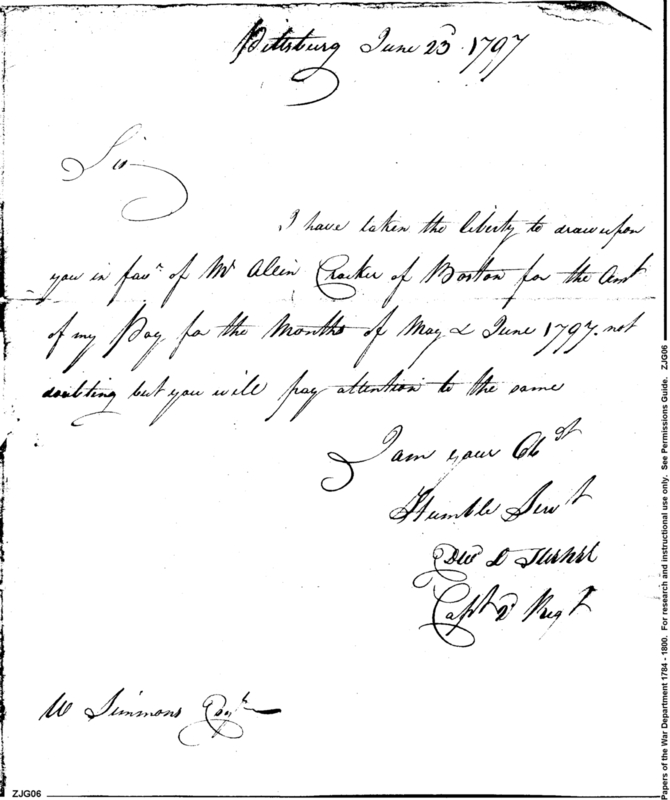 Pittsburg June 23d 1797
Sir
I have taken the liberty to draw upon
you in favr of Mr Allin Crocker of Boston for the Amt
of my Pay for the Months of May & June 1797. not
doubting but you will pay attention to the same
I am your Obst
Humble Servt
Edwd D
Capt 2d Regt
W Simmons Esqr
ZJG06
Papers of the War Department 1784 - 1800. For research and instructional use only. See Permissions Guide. ZJG06